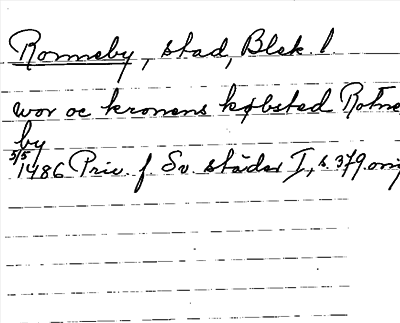 Ronneby, stad, Blek. l.
wor oc kronens købsted Rotne
by
5/5 1486 Priv. f. Sv. städer I, s. 379. orig